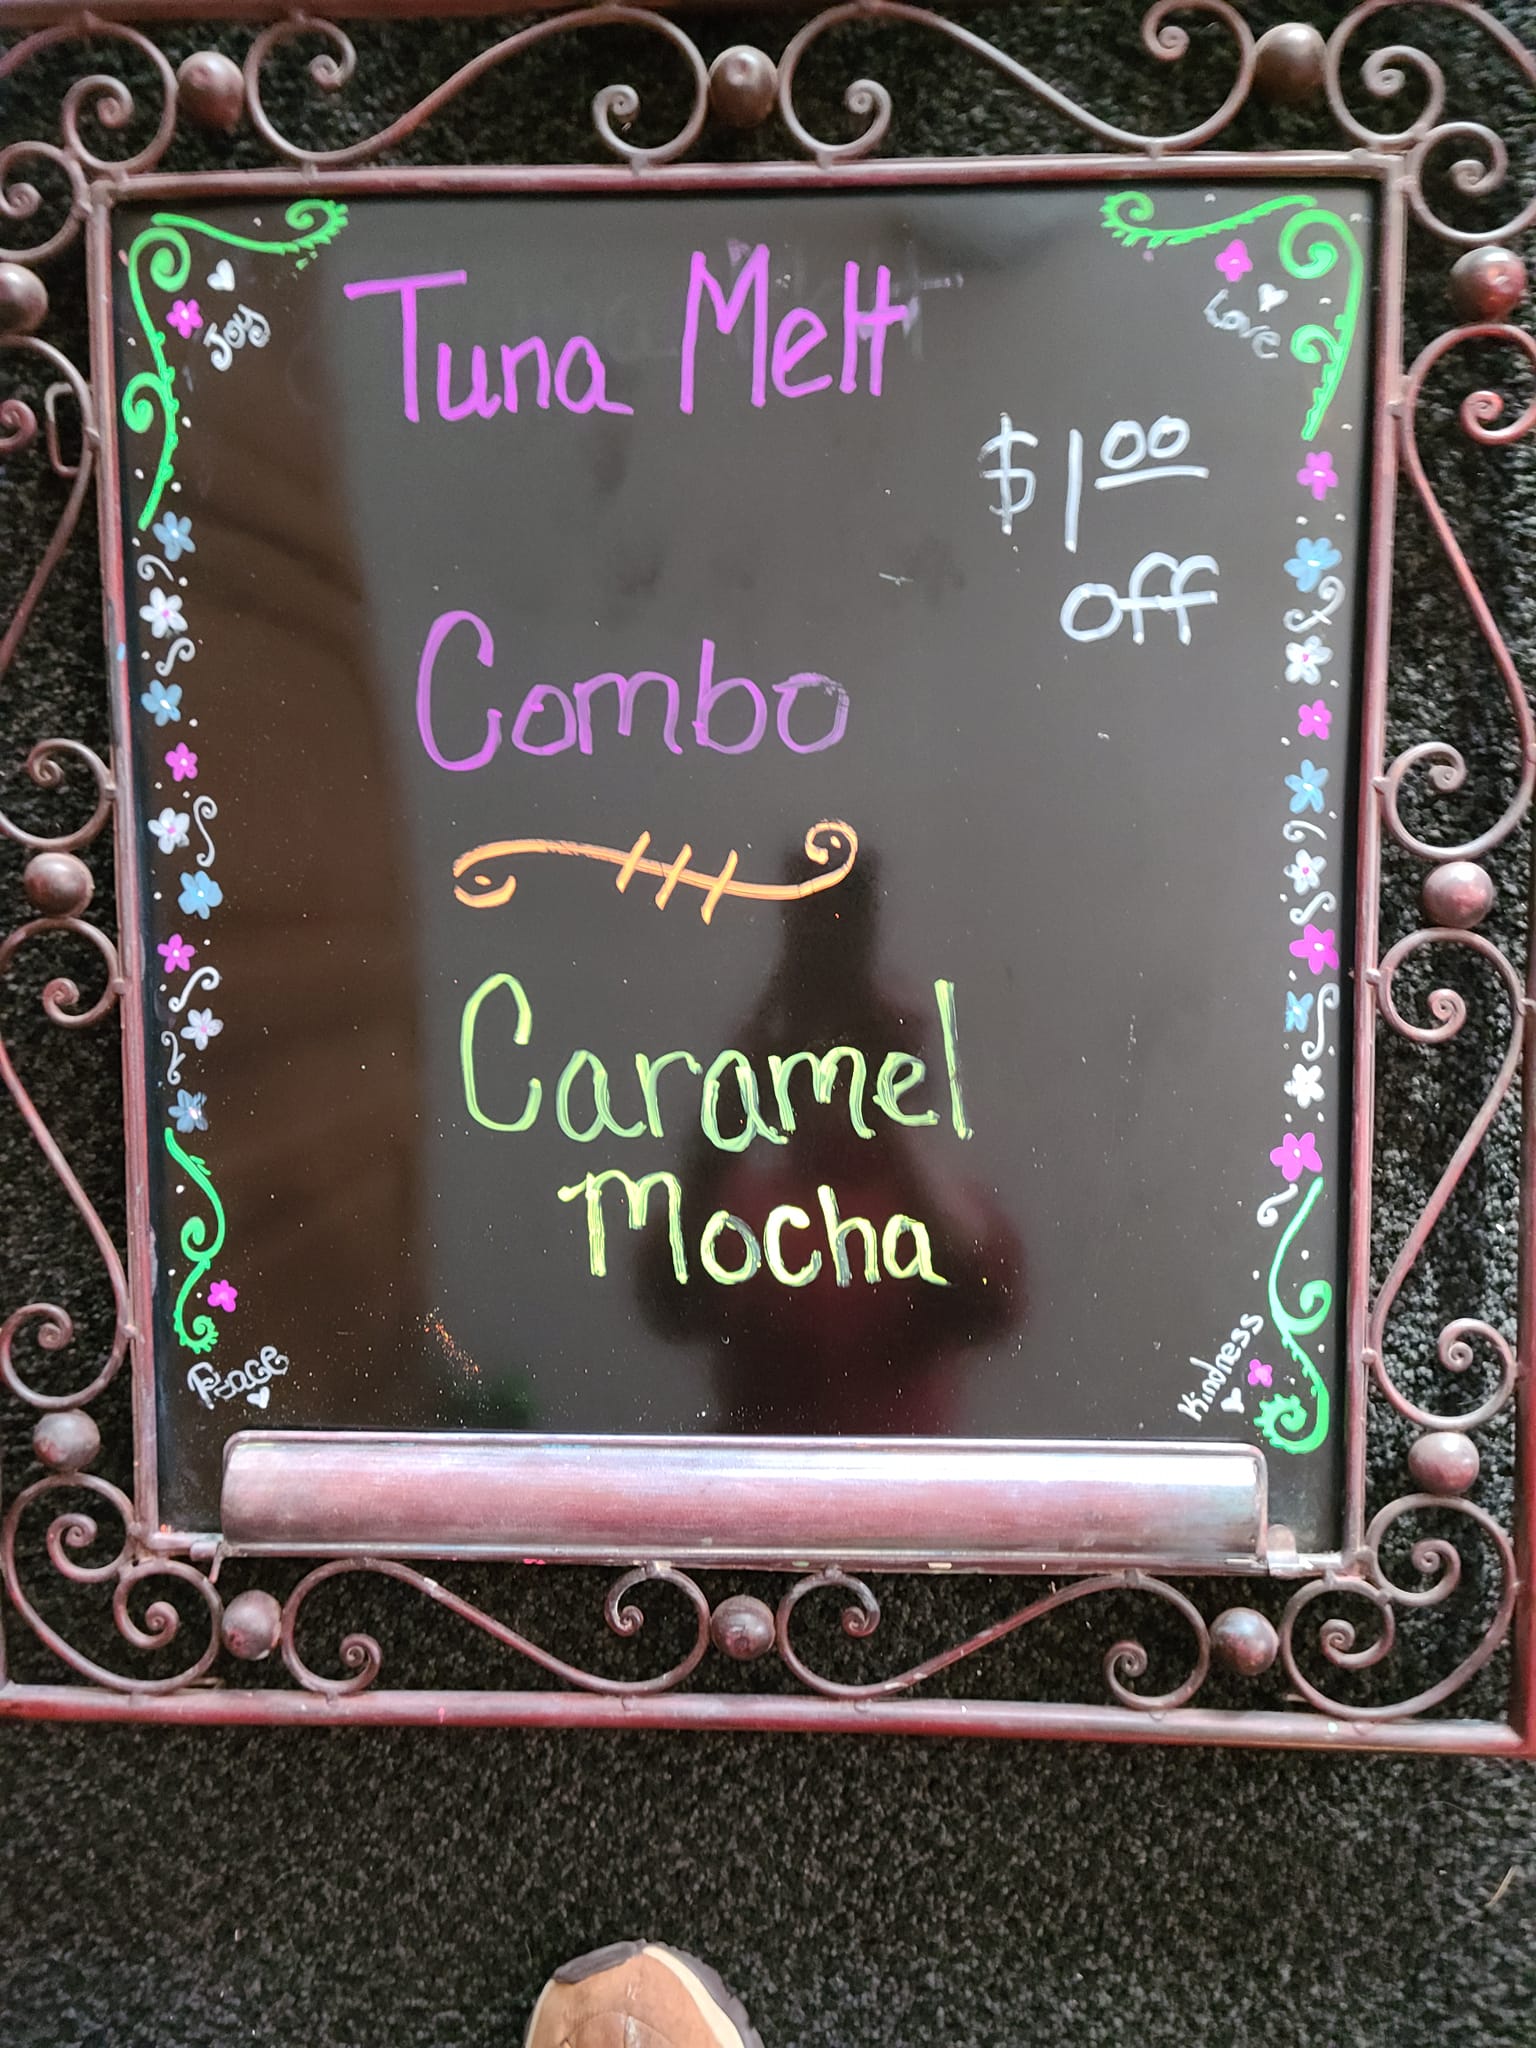 Joy
Love
Tuna Melt
$1.00
off
Combo
Caramel
Mocha
Peace
Kindness